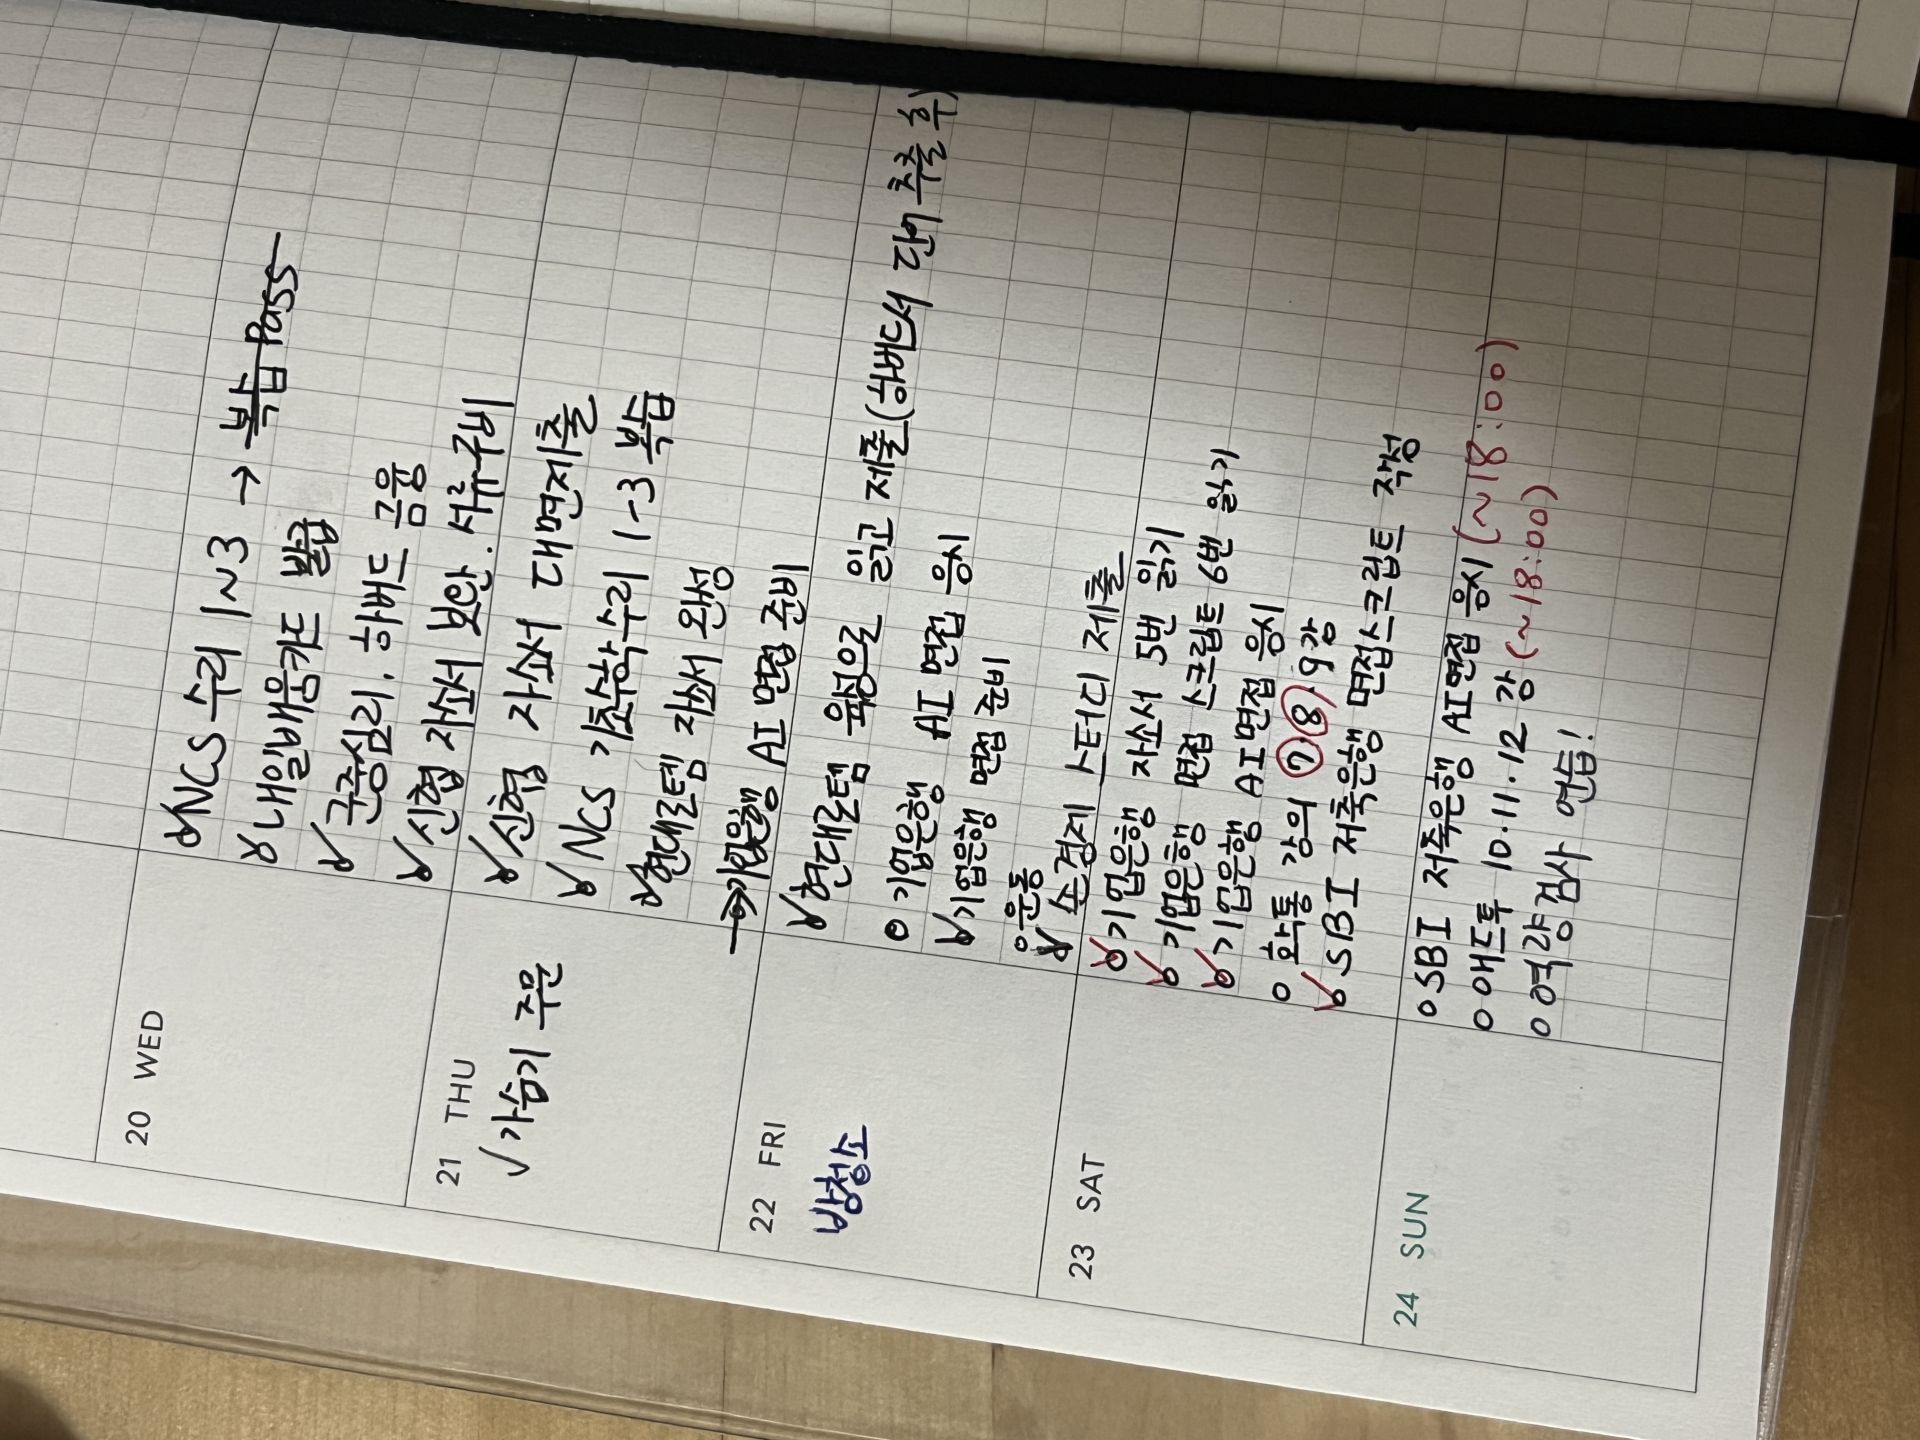 20 WED
NCS 수리 1~3 → 복습 Pass
내일배움카드 발급
군중심리. 하버드 금융
신협 자소서 보완. 서류구비
21 THU
가습기 주문
신협 자소서 대면제출
NCS 기초수학수리 1-3 복습
현대로템 자소서 완성
기업은행 AI 면접 준비
22 FRI
방청소
현대로템 육성으로 읽고 제출(하버드서 단어 추출 후)
기업은행 AI 면접 응시
기업은행 면접 준비
운동
손경제 스터디 제출
23 SAT
기업은행 자소서 5번 읽기
기업은행 면접 스크립트 6번 읽기
기업은행 AI면접 응시
화통 강의 7.8.9강
SBI 저축은행 면접스크립트 작성
24 SUN
SBI 저축은행 AI면접 응시 (~18:00)
애드투 10.11.12강 (~18:00)
역량검사 연습!